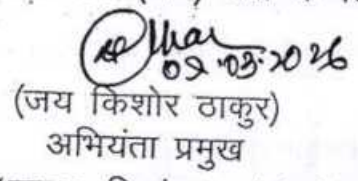 09.03.2026
(जय किशोर ठाकुर)
अभियंता प्रमुख